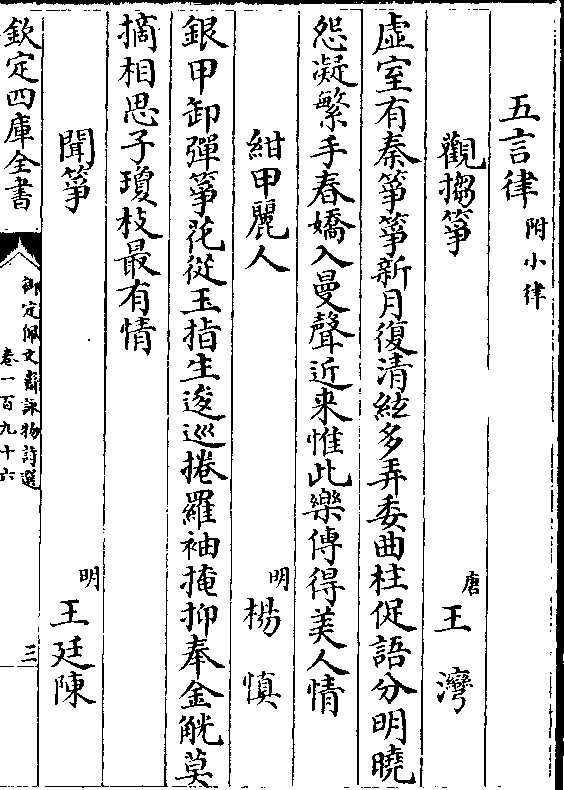 五言律附小律
觀搊箏 唐 王灣
虛室有秦箏箏新月復清絃多弄委曲柱促語分明曉
怨凝繁手春嬌入曼聲近来惟此樂傳得美人情
紺甲麗人 明 楊慎
銀甲卸彈箏花從玉指生逡巡捲羅袖掩抑奉金觥莫
摘相思子瓊枝最有情
聞箏 明 王廷陳
欽定四庫全書
御定佩文齋詠物詩選
卷一百九十六
三